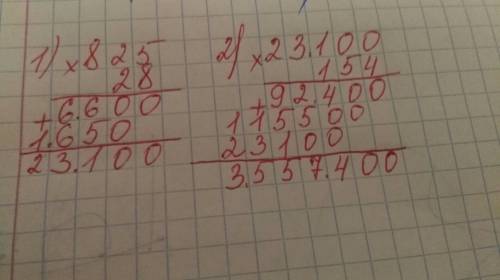 1) × 825
28
+ 6.600
1.650
23.100
2) × 23.100
154
+ 92400
115500
23100
3.557.400